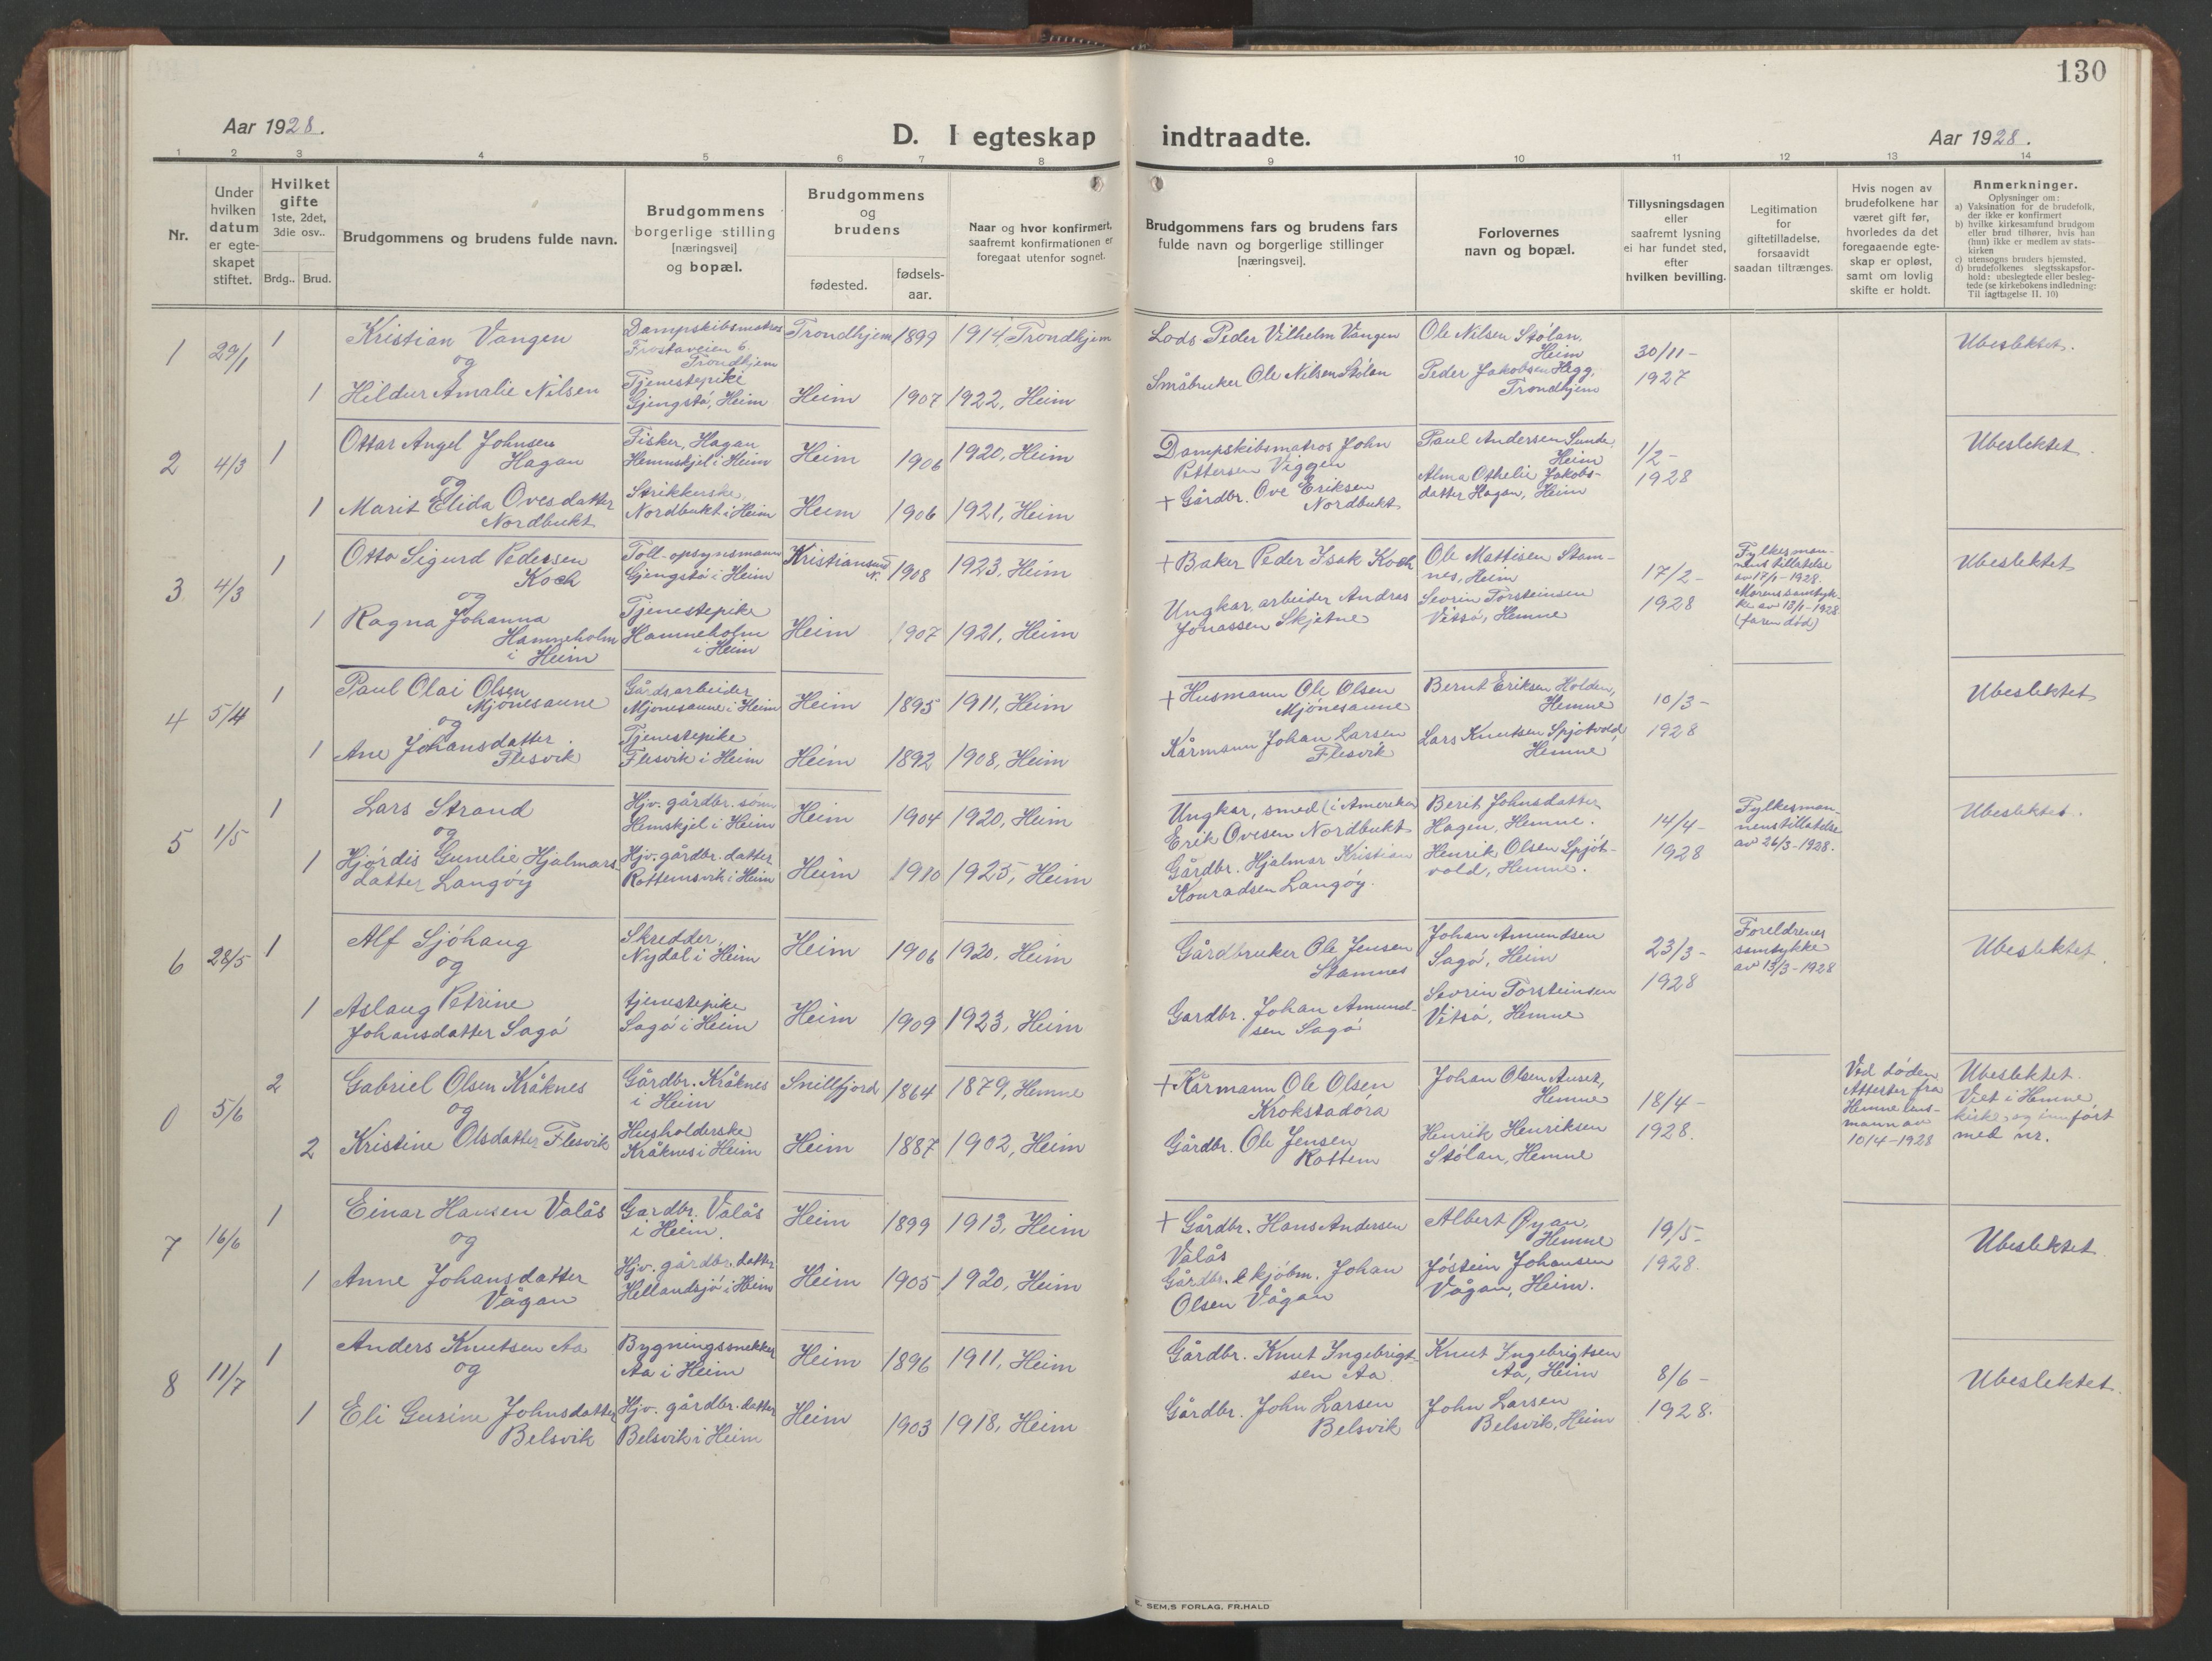 130
Aar 1928.
D. I egteskap indtraadte.
Aar 1928.
1 2 3 4 5 6 7 8 9 10 11 12 13 14
Nr.
Under hvilken datum er egte-skapet stiftet.
Hvilket gifte 1ste, 2det, 3die osv..
Brdg.. Brud.
Brudgommens og brudens fulde navn.
Brudgommens borgerlige stilling [næringsvei] og bopæl.
Brudgommens og brudens
fødested.
fødsels-aar.
Naar og hvor konfirmert, saafremt konfirmationen er foregaat utenfor sognet.
Brudgommens fars og brudens fars fulde navn og borgerlige stillinger [næringsvei].
Forlovernes navn og bopæl.
Tillysningsdagen eller saafremt lysning ei har fundet sted, efter hvilken bevilling.
Legitimation for giftetilladelse, forsaavidt saadan tiltrænges.
Hvis nogen av brudefolkene har været gift før, hvorledes da det foregaaende egte-skap er opløst, samt om lovlig skifte er holdt.
Anmerkninger.
Oplysninger om:
a) Vaksination for de brudefolk, der ikke er konfirmert
b) hvilke kirkesamfund brudgom eller brud tilhører, hvis han (hun) ikke er medlem av stats-kirken
c) utensogns bruders hjemsted.
d) brudefolkenes slegtsskapsfor-hold: ubeslegtede eller besleg-tede (se kirkebokens indledning: Til iagttagelse II. 10)
1 29/1 1 Kristian Vangen og
Dampskibsmatros Frostaveien 6. Trondhjem
Trondhjem 1899 1914, Trondhjem
Lods Peder Vilhelm Vangen
Ole Nilsen Stölan, Heim
30/11-1927
Ubeslektet.
1 Hildur Amalie Nilsen
Tjenestepike Gjengstö, Heim
Heim 1907 1922, Heim
Småbruker Ole Nilsen Stölan
Peder Jakobsen Hegg, Trondhjem
2 4/3 1 Ottar Angel Johnsen Hagan og
Fisker, Hagan Hemnskjel i Heim
Heim 1906 1920, Heim
Dampskibsmatros John Pettersen Viggen
Paul Andersen Sunde, Heim
1/2-1928
Ubeslektet.
1 Marit Elida Ovesdatter Nordbukt
Strikkerske, Nordbukt i Heim
Heim 1906 1921, Heim
+ Gårdbr. Ove Eriksen Nordbukt
Alma Othelie Jakobs-datter Hagan, Heim
3 4/3 1 Otto Sigurd Pedersen Koch og
Toll-opsynsmann Gjengstö i Heim
Kristiansund N. 1908 1923, Heim
+ Baker Peder Isak Koch
Ole Mattisen Stam-nes, Heim
17/2-1928
Fylkesman-nens tillatelse av 17/1-1928. Morens samtyk-ke av 13/1-1928 (faren död)
Ubeslektet
1 Ragna Johanna Hamneholm i Heim
Tjenestepike Hamneholm i Heim
Heim 1907 1921, Heim
Ungkar, arbeider Andras Jonassen Skjetne
Sevrin Torsteinsen Vitsö, Hemne
4 5/4 1 Paul Olai Olsen Mjönesaune og
Gårdsarbeider Mjönesaune i Heim
Heim 1895 1911, Heim
+ Husmann Ole Olsen Mjönesaune
Bernt Eriksen Holden, Hemne
10/3-1928
Ubeslektet
1 Ane Johansdatter Flesvik
Tjenestepike Flesvik i Heim
Heim 1892 1908, Heim
Kårmann Johan Larsen Flesvik
Lars Knutsen Spjötvold, Hemne
5 1/5 1 Lars Strand og
Hjv. gårdbr. sönn Hemskjel i Heim
Heim 1904 1920, Heim
Ungkar, smed (i Amerika) Erik Ovesen Nordbukt
Berit Johnsdatter Hagen, Hemne.
14/4-1928
Fylkesman-nens tillatelse av 26/3-1928.
Ubeslektet.
1 Hjördis Gunelie Hjalmars-datter Langöy
Hjv. gårdbr. datter Rottemsvik i Heim
Heim 1910 1925, Heim
Gårdbr. Hjalmar Kristian Konradsen Langöy.
Henrik Olsen Spjöt-vold, Hemne.
6 28/5 1 Alf Sjöhaug og
Skredder, Nydal i Heim
Heim 1906 1920, Heim
Gårdbruker Ole Jensen Stamnes
Johan Amundsen Sagö, Heim
23/3-1928
Foreldrenes samtykke av 13/3-1928
Ubeslektet.
1 Aslaug Petrine Johansdatter Sagö
tjenestepike Sagö i Heim
Heim 1909 1923, Heim
Gardbr. Johan Amund-sen Sagö
Sevrin Torsteinsen Vitsö, Hemne
0 5/6 2 Gabriel Olsen Kråknes og
Gårdbr. Kråknes i Heim
Snillfjord 1864 1879, Hemne
+ Kårmann Ole Olsen Krokstadöra
Johan Olsen Aunet, Hemne
18/4-1928.
Ved döden Attester fra Hemne lens-mann av 10/4-1928
Ubeslektet. Viet i Hemne kirke, og innfört med nr.
2 Kristine Olsdatter Flesvik
Husholderske Kråknes i Heim
Heim 1887 1902, Heim
Gårdbr. Ole Jensen Rottem
Henrik Henriksen Stölan, Hemne
7 16/6 1 Einar Hansen Valås og
Gardbr. Valås i Heim.
Heim 1899 1913, Heim
+ Gårdbr. Hans Andersen Valås
Albert Øyan, Hemne
19/5-1928.
Ubeslektet.
1 Anne Johansdatter Vågan
Hjv. gårdbr. datter Hellandsjö i Heim
Heim 1905 1920, Heim
Gårdbr. & kjöbm. Johan Olsen Vågan
Jöstein Johansen Vågan, Heim.
8 11/7 1 Anders Knutsen Aa og
Bygningssnekker Aa i Heim
Heim 1896 1911, Heim
Gårdbr. Knut Ingebrigt-sen Aa
Knut Ingebrigtsen Aa, Heim
8/6-1928.
Ubeslektet.
1 Eli Gurine Johnsdatter Belsvik
Hjv. gårdbr. datter Belsvik i Heim
Heim 1903 1918, Heim
Gårdbr. John Larsen Belsvik
John Larsen Belsvik, Heim
E. SEM.S FORLAG, FR.HALD